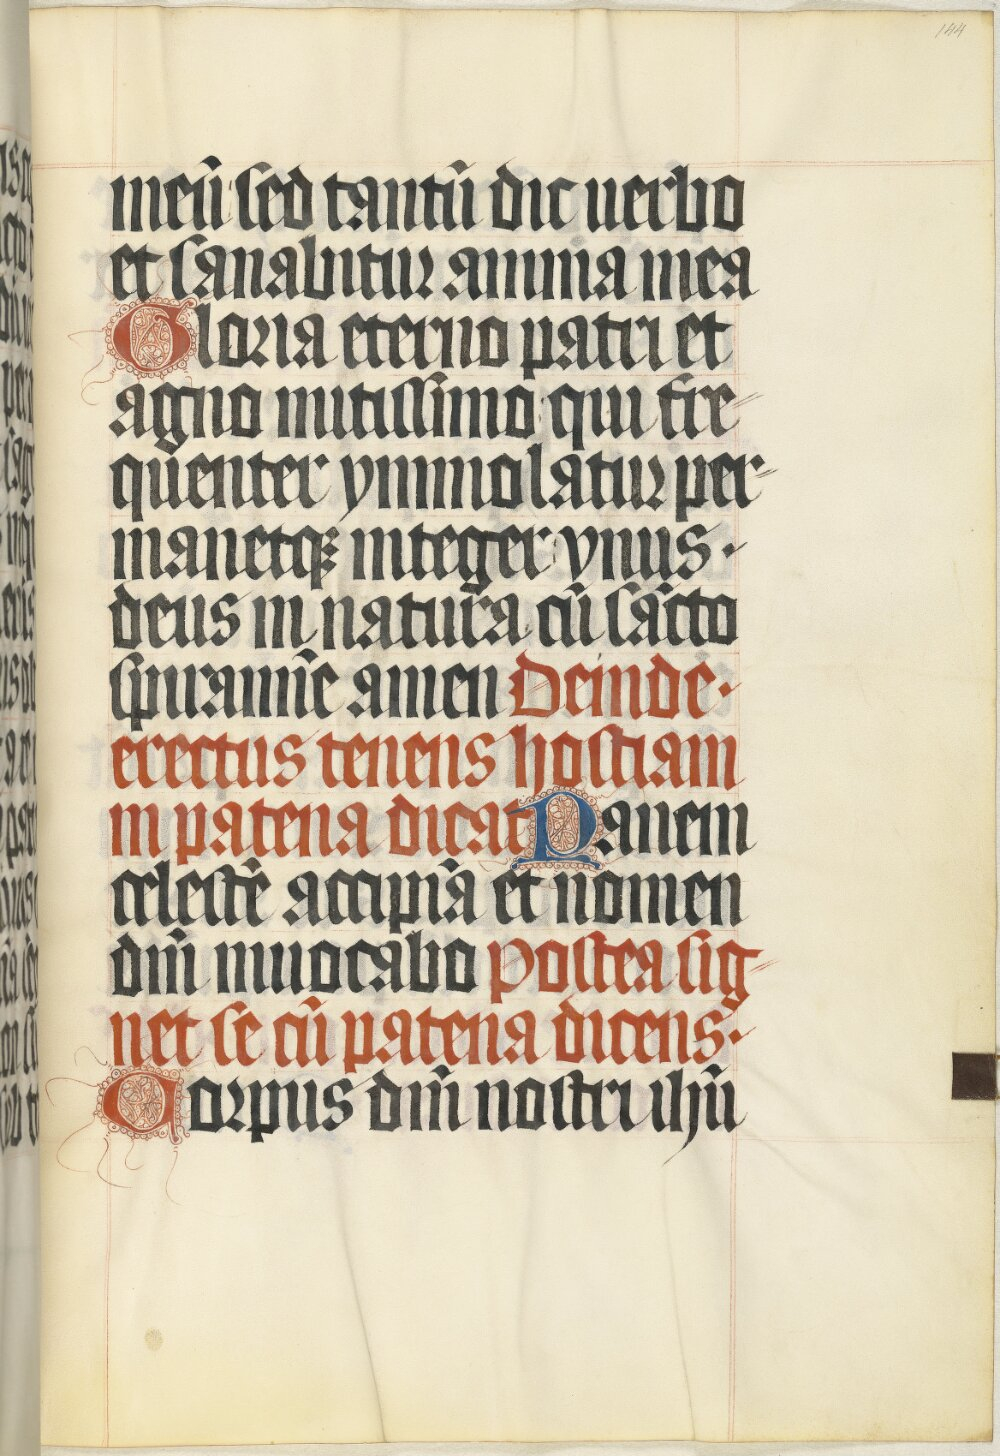 144
meũ sed tantũ dic uerbo
et sanabitur anima mea
Gloria eterno patri et
agno mitissimo qui fre-
quenter ymmolatur per-
manetqꝫ integer ynus·
deus in natura cũ sãcto
spiramĩe amen Deinde·
erectus tenens hostiam
in patena dicat Panem
celestẽ accipiã et nomen
dñi inuocabo Postea sig-
net se cũ patena dicens·
Corpus dñi nostri ihũ